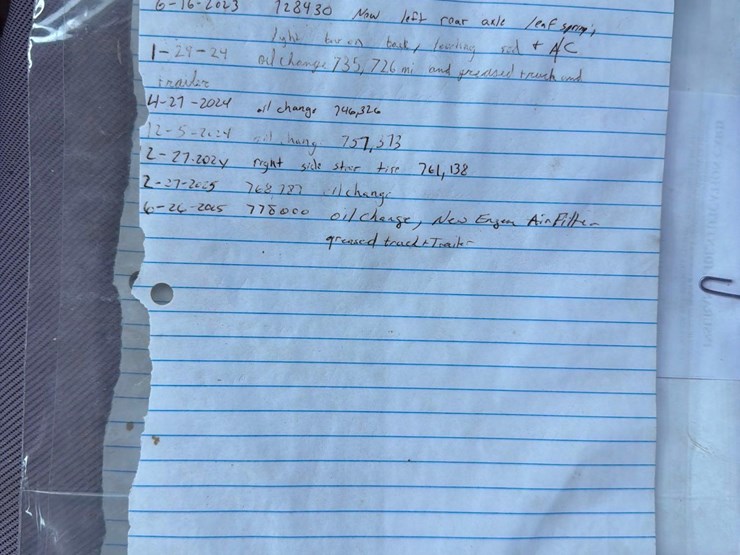 6-16-2023 728430 New left rear axle leaf spring,
light bar on back, leaking rod + A/C
1-29-24 oil change 735,726 mi and greased truck and
trailer
4-27-2024 oil change 746,326
12-5-2024 oil change 757,373
2-27-2024 right side steer tire 761,138
2-27-2025 768,787 oil change
6-26-2025 778000 oil change, New Engen Air Filter
greased truck + Trailer